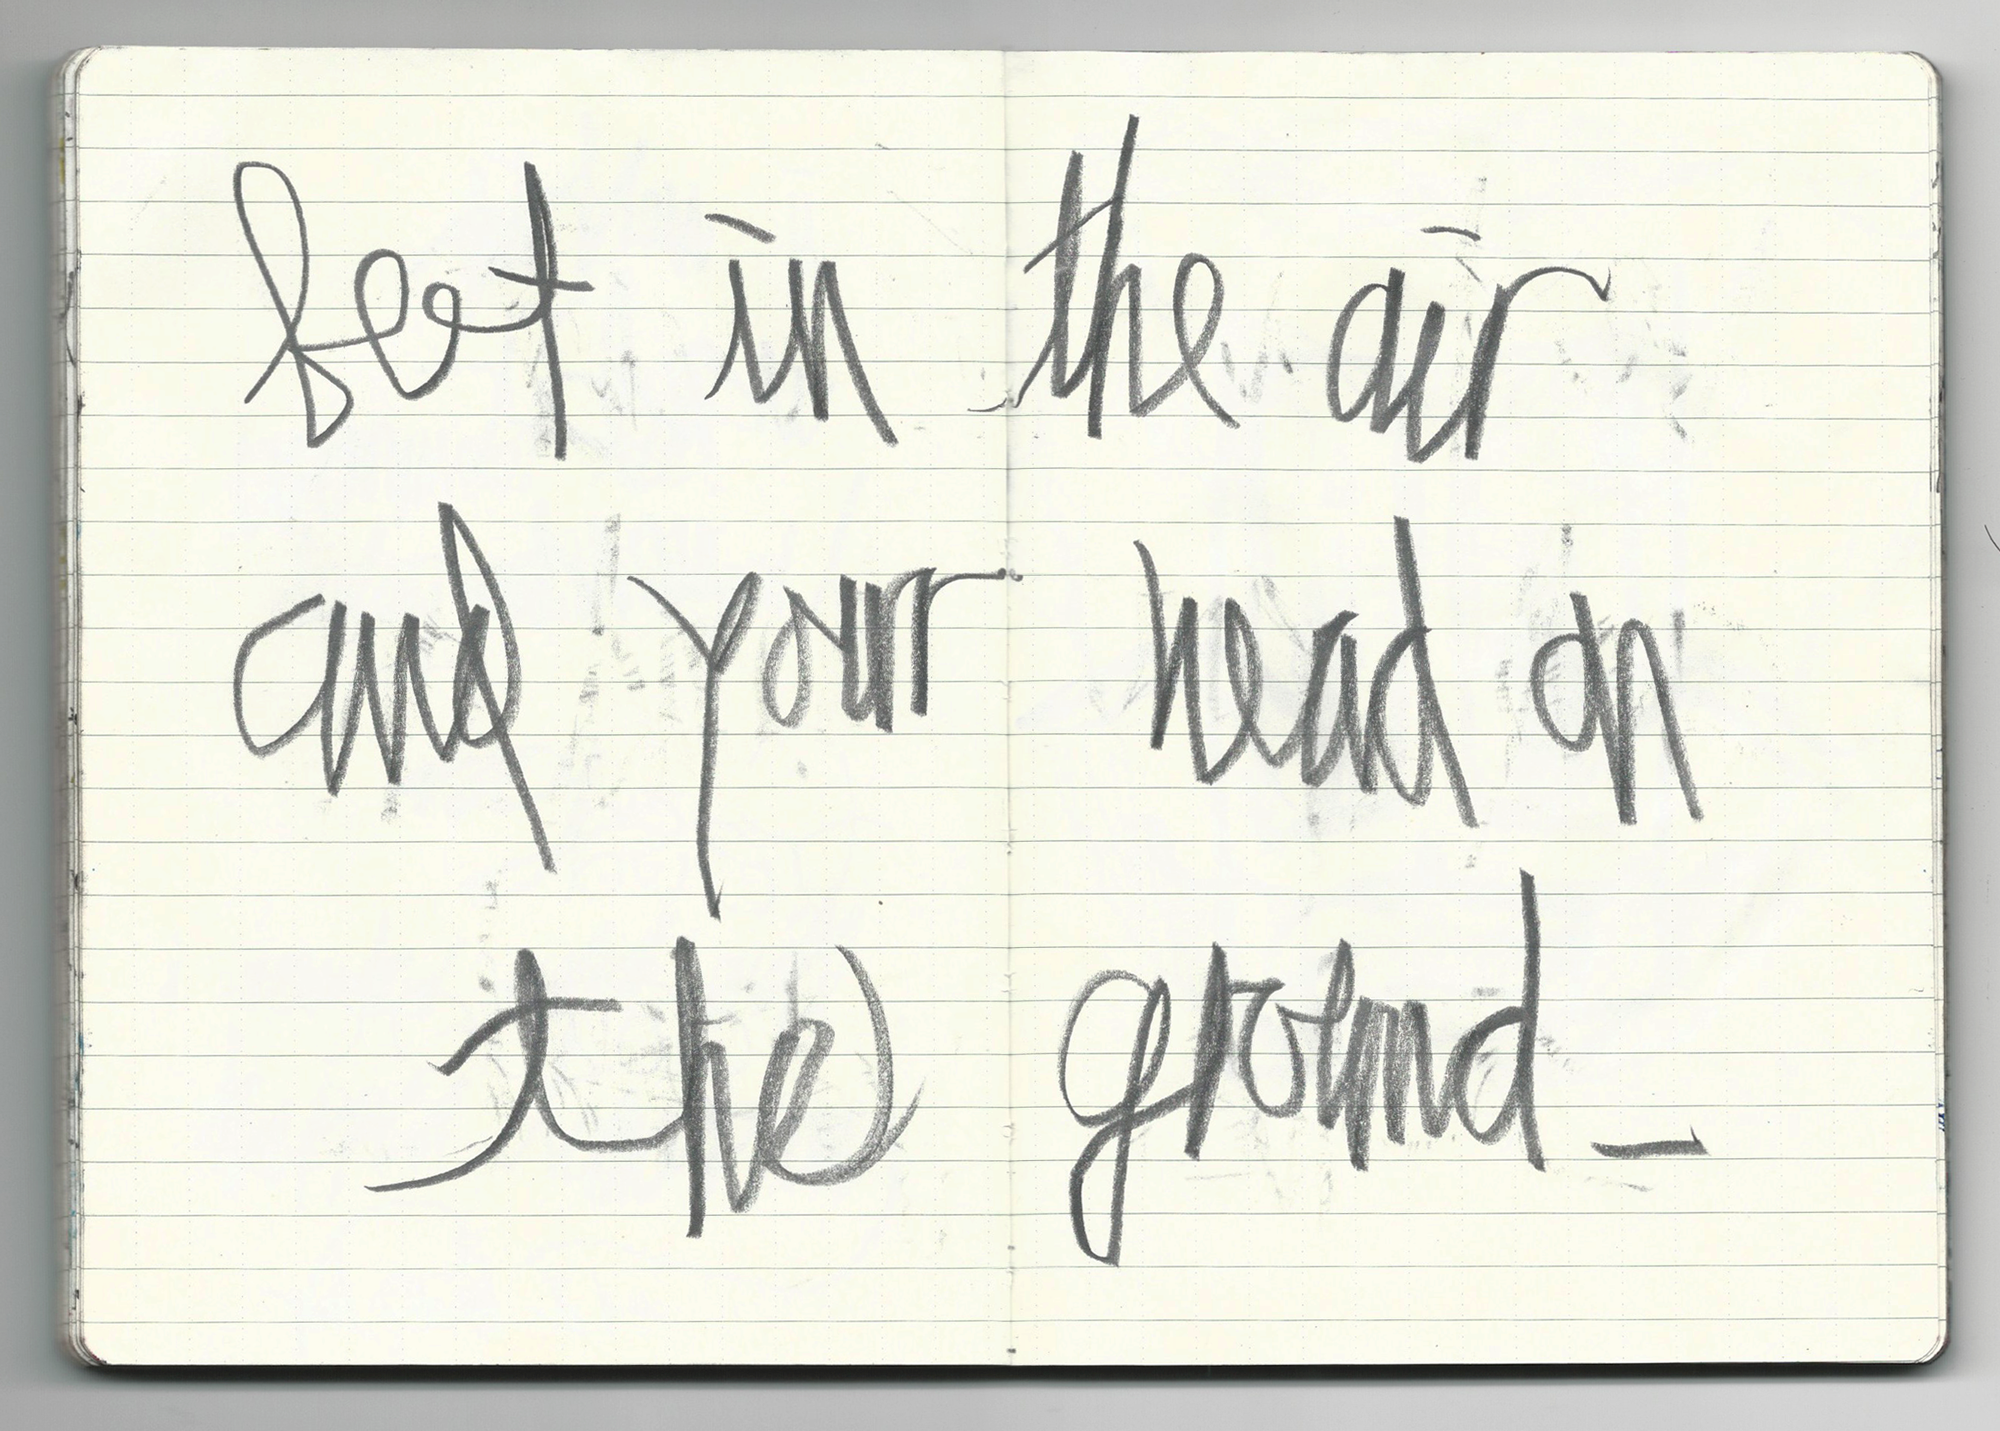 feet in the air
and your head on
the ground_